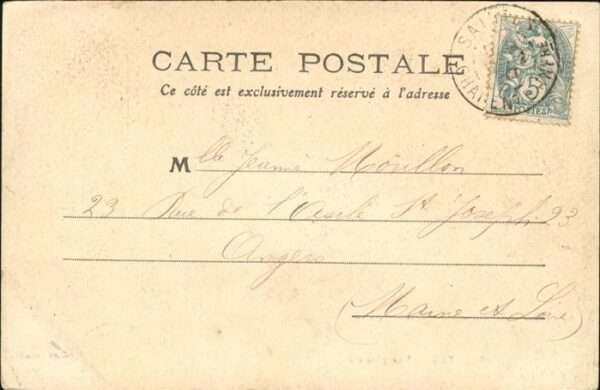 CARTE POSTALE
Ce côté est exclusivement réservé à l'adresse
Mlle Jeanne
23 Rue de l'Asile St Joseph 23
Angers
(Maine et Loire)